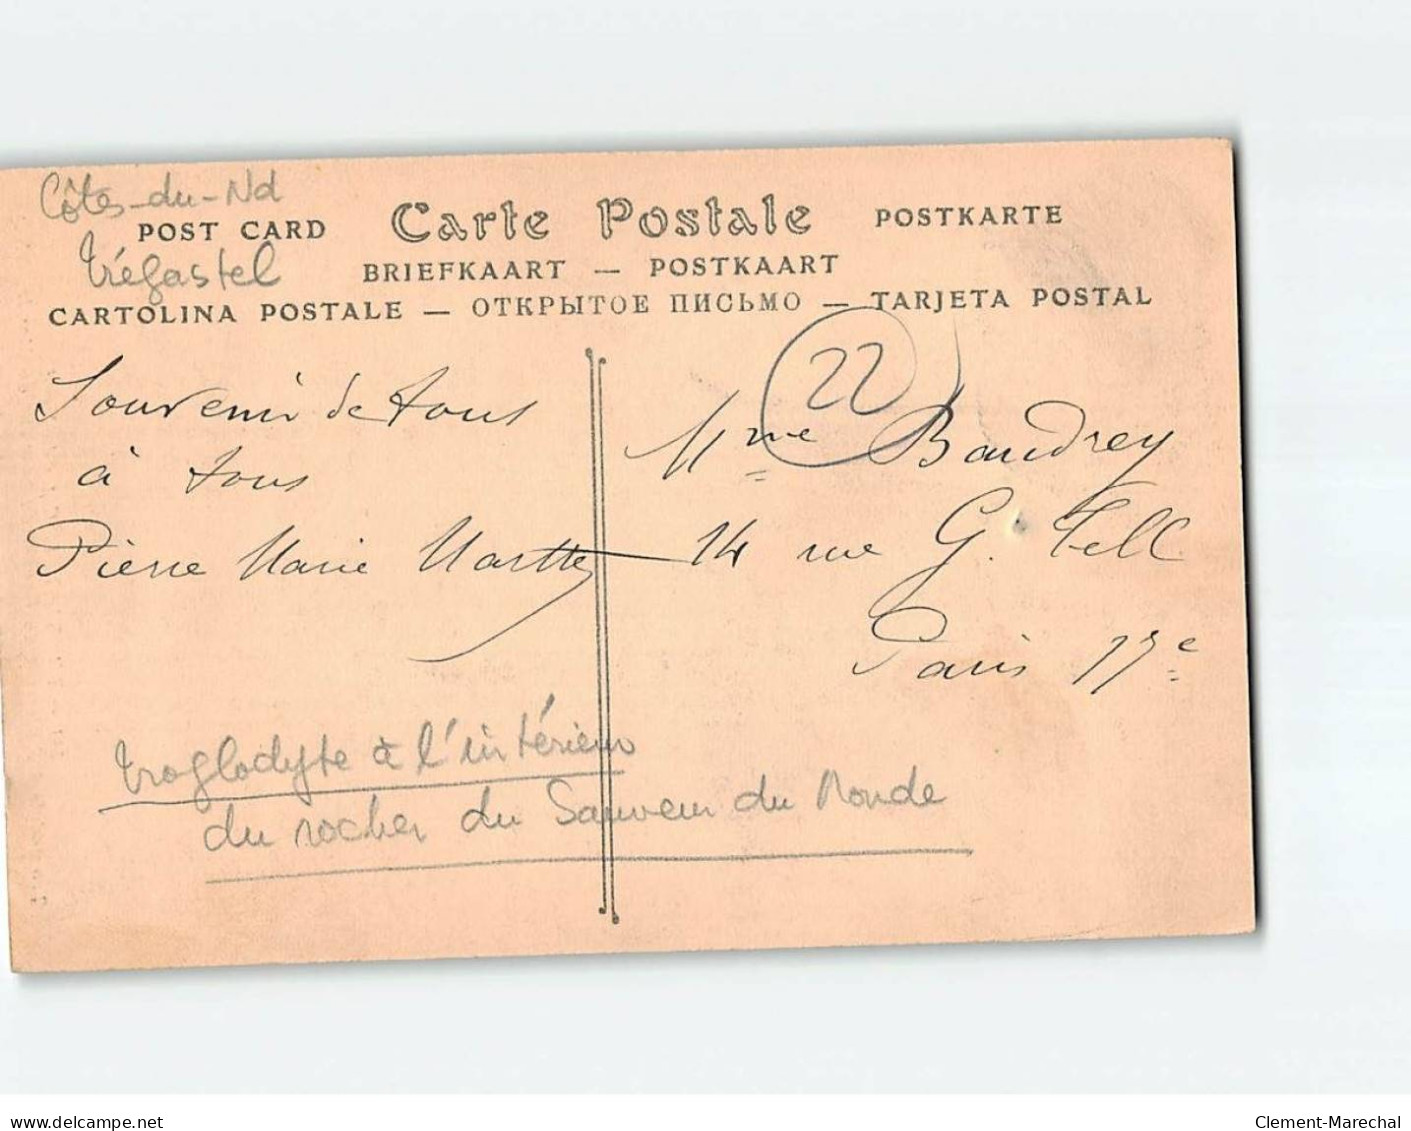 Côtes-du-Nd
POST CARD Carte Postale POSTKARTE
Trégastel
BRIEFKAART — POSTKAART
CARTOLINA POSTALE — ОТКРЫТОЕ ПИСЬМО — TARJETA POSTAL
22
Souvenir de tous
à tous
Pierre Marie Marthe
Mme Baudrey
14 rue G. Tell
Paris 17e
troglodyte à l'intérieur
du rocher du Sauveur du Monde
www.delcampe.net
Clement-Marechal